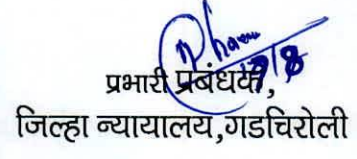 प्रभारी प्रबंधक,
जिल्हा न्यायालय,गडचिरोली